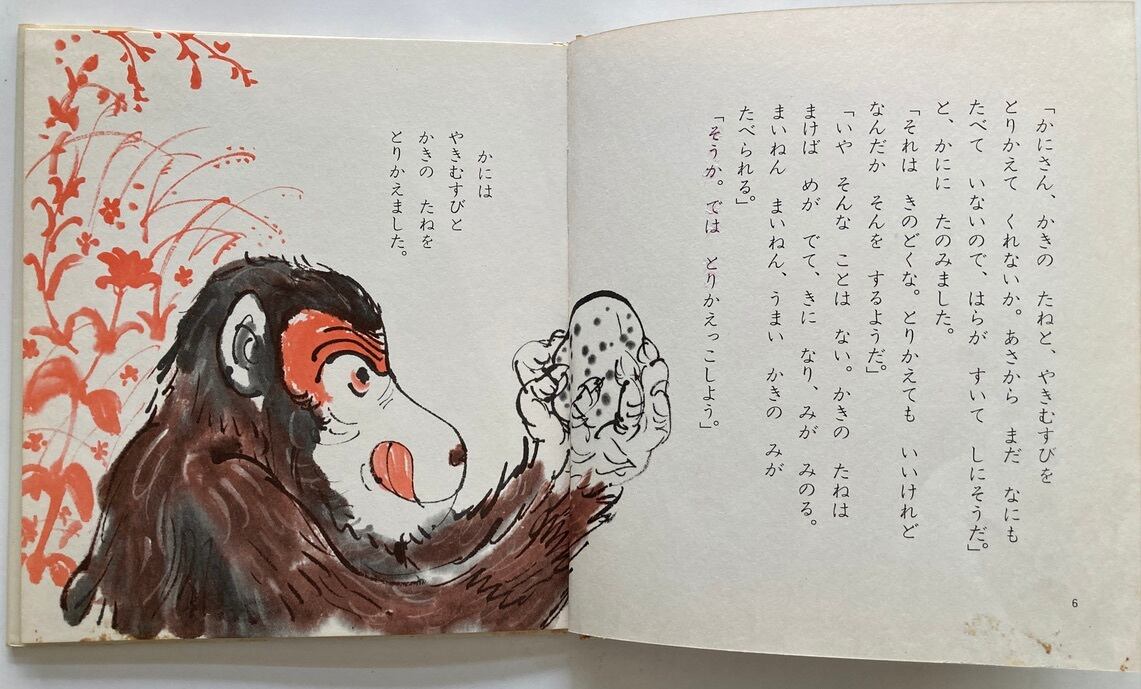 「かにさん、かきの　たねと、やきむすびを
とりかえて　くれないか。あさから　まだ　なにも
たべて　いないので、はらが　すいて　しにそうだ。」
と、かにに　たのみました。
「それは　きのどくな。とりかえても　いいけれど
なんだか　そんを　するようだ。」
「いや　そんな　ことは　ない。かきの　たねは
まけば　めが　でて、きに　なり、みが　みのる。
まいねん　まいねん、うまい　かきの　みが
たべられる。」
「そうか。では　とりかえっこしよう。」
かには
やきむすびと
かきの　たねを
とりかえました。
6